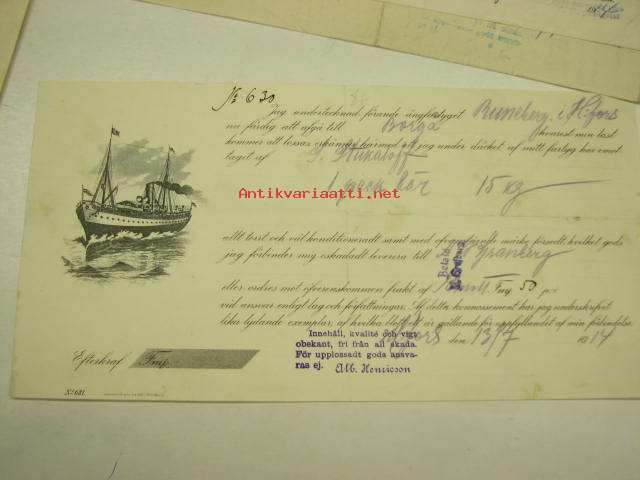 No 630
Jag undertecknad, förande ångfartyget Runeberg, i H:fors
nu färdig att afgå till Borgå hvarest min last
kommer att lossas, erkänner härmed att jag under däcket af mitt fartyg har emot
tagit af S. Nikaloff
1 pack hår 15 kg
Antikvariaatti.net
allt torrt och väl konditioneradt samt med ofvanstående märke försedt, hvilket gods
jag förbinder mig oskadadt leverera till
Betald
eller ordres mot öfverenskommen frakt af Fmf 50 p:i
vid ansvar enligt lag och författningar. Af detta konnossement har jag underskrifvit
lika lydande exemplar, af hvilka blott ett är gällande för uppfyllandet af min förbindelse.
H:fors den 13/7 1914
Innehåll, kvalité och vigt
obekant, fri från all skada.
För upplossadt gods ansva-
ras ej. Alb. Henricson
Efterkraf Fmf
No 681